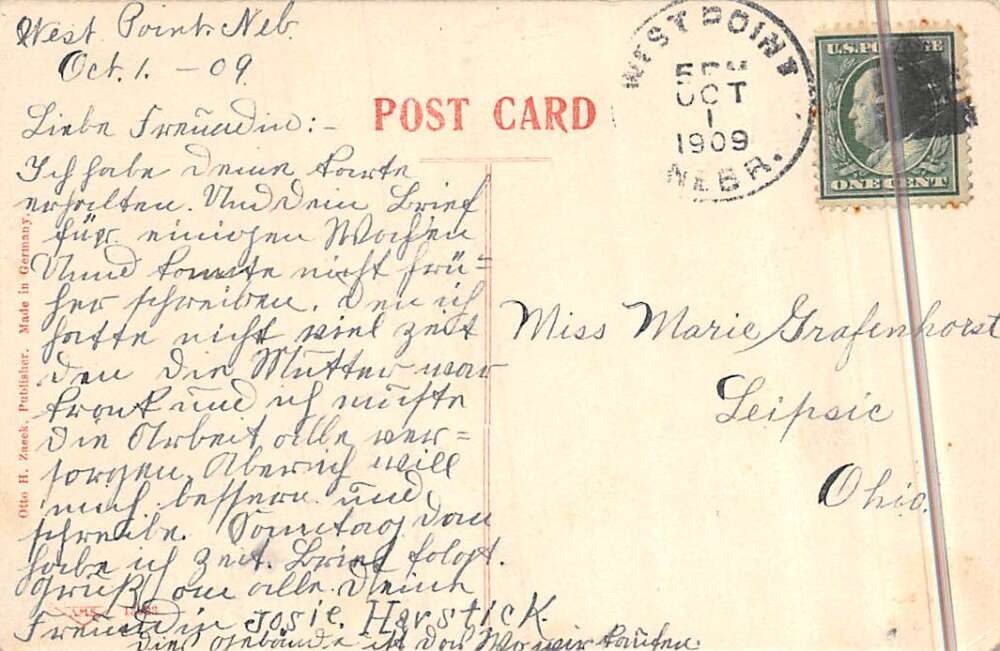 West Point. Neb.
Oct. 1. - 09.
Liebe Freundin:-
Ich habe deine karte
erhalten. Und dein Brief
für einigen Wochen
Unnd konnte nicht frü=
her schreiben. den ich
hatte nicht viel zeit
den die Mutter war
krank und ich müste
die Arbeit alle ver=
sorgen. Aber ich will
mich bessern und
schreibe Sonntag dan
habe ich zeit. Brief folgt.
Gruß an alle. Deine
Freundin Josie. Harstick.
Dies Gebände ist das Wo wir kaufen.
POST CARD
Otto H. Zaeck, Publisher. Made in Germany.
WEST POINT
5 PM
OCT
1
1909
NEBR.
U.S. POSTAGE
ONE CENT
Miss Marie Grafenhorst
Leipsic
Ohio.